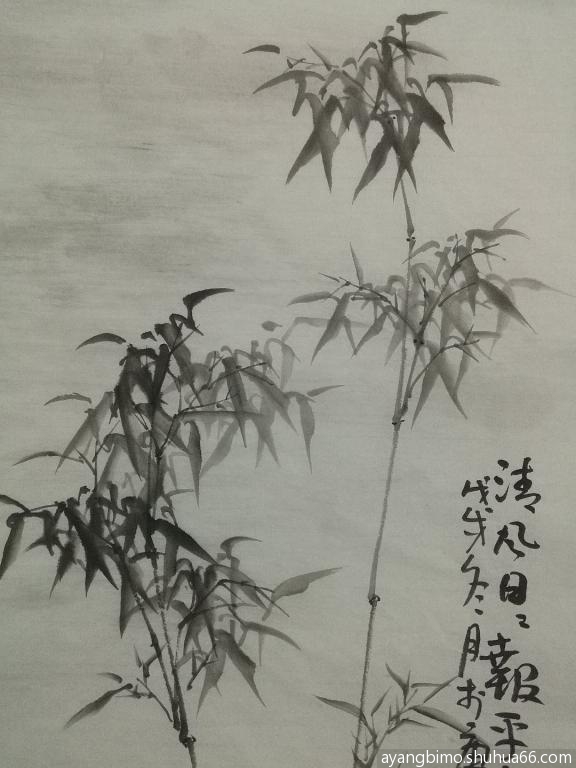 清风日日報平
戊戌冬月於
ayangbimo.shuhua66.com